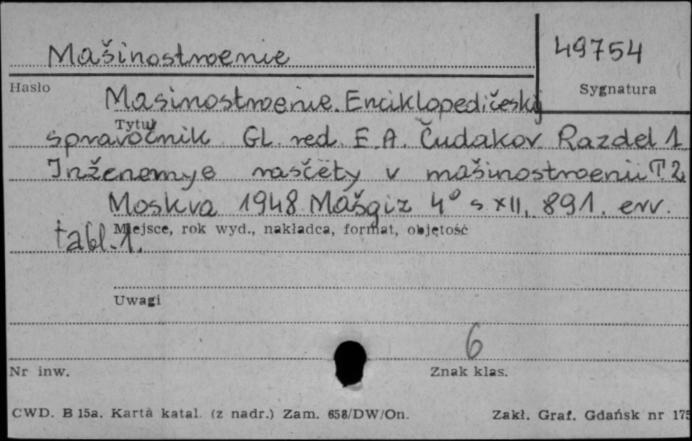 Mašinostroenie
49754
Hasło
Sygnatura
Mašinostroenie. Enciklopedičeskij
Tytuł
spravočnik Gl. red. E. A. Čudakov Razdel 1
Inženernye rasčëty v mašinostroenii T. 2
Moskva 1948 Mašgiz 4° s XII, 891, err.
Miejsce, rok wyd., nakładca, format, objętość
tabl. 1.
Uwagi
6
Nr inw.
Znak klas.
CWD. B 15a. Karta katal. (z nadr.) Zam. 658/DW/On.
Zakł. Graf. Gdańsk nr 175